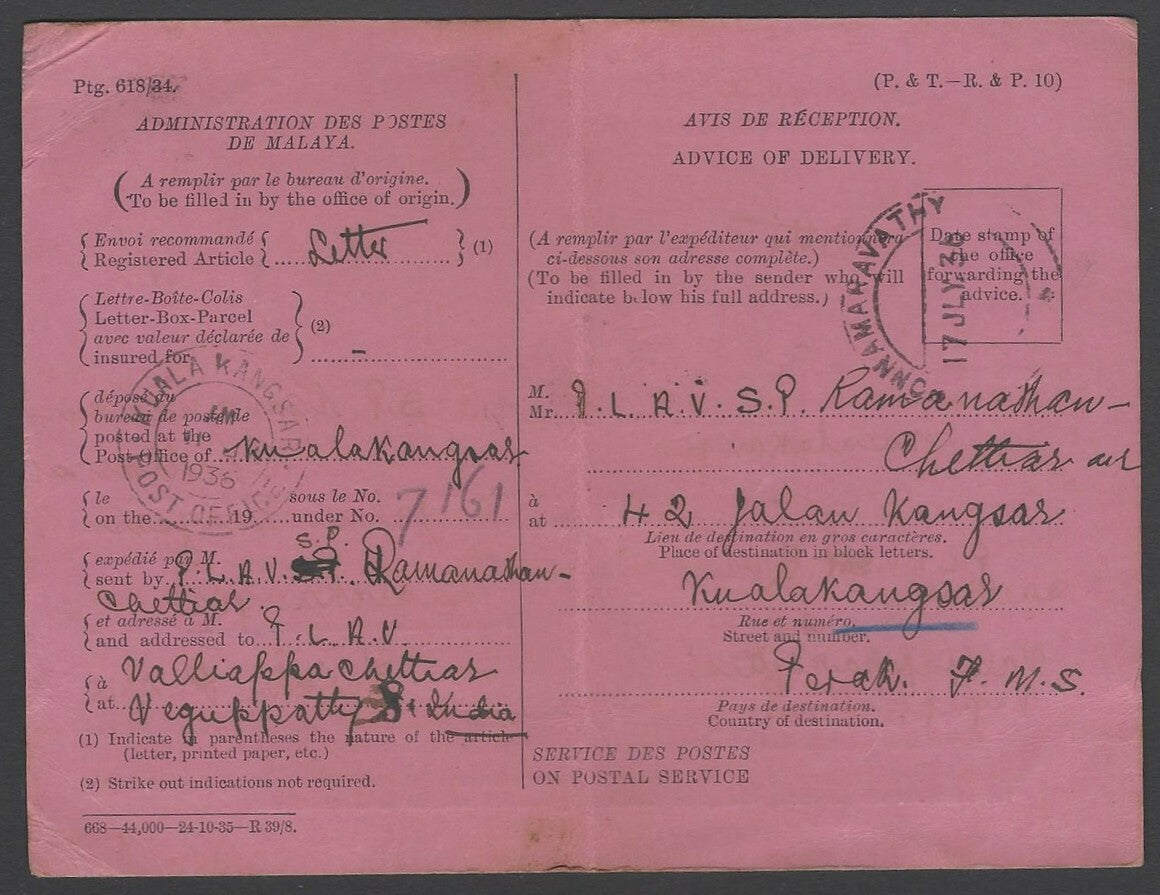 Ptg. 618/34.
ADMINISTRATION DES POSTES
DE MALAYA.
(A remplir par le bureau d'origine.
To be filled in by the office of origin.)
Envoi recommandé
Registered Article { Letter } (1)
Lettre-Boîte-Colis
Letter-Box-Parcel
avec valeur déclarée de
insured for } (2) –
déposé au
bureau de poste de
posted at the
Post Office of Kualakangsar
le sous le No.
on the 19 under No. 7161
S.P.
expédié par M.
sent by P. L. A. V. Ramanathan-
Chettiar.
et adressé à M.
and addressed to P. L. A. V
Valliappa Chettiar
à
at Veguppatty S. India
(1) Indicate in parentheses the nature of the article
(letter, printed paper, etc.)
(2) Strike out indications not required.
668—44,000—24-10-35—R 39/8.
KUALA KANGSAR
1936
POST OFFICE
(P. & T.—R. & P. 10)
AVIS DE RÉCEPTION.
ADVICE OF DELIVERY.
(A remplir par l'expéditeur qui mentionnera
ci-dessous son adresse complète.)
(To be filled in by the sender who will
indicate below his full address.)
Date stamp of
the office
forwarding the
advice.
PONNAMARAVATHY
17 JLY 36
M.
Mr. P. L. A. V. S. P. Ramanathan-
Chettiar
à
at 42 Jalan Kangsar
Lieu de destination en gros caractères.
Place of destination in block letters.
Kualakangsar
Rue et numéro.
Street and number.
Perak. F. M. S.
Pays de destination.
Country of destination.
SERVICE DES POSTES
ON POSTAL SERVICE